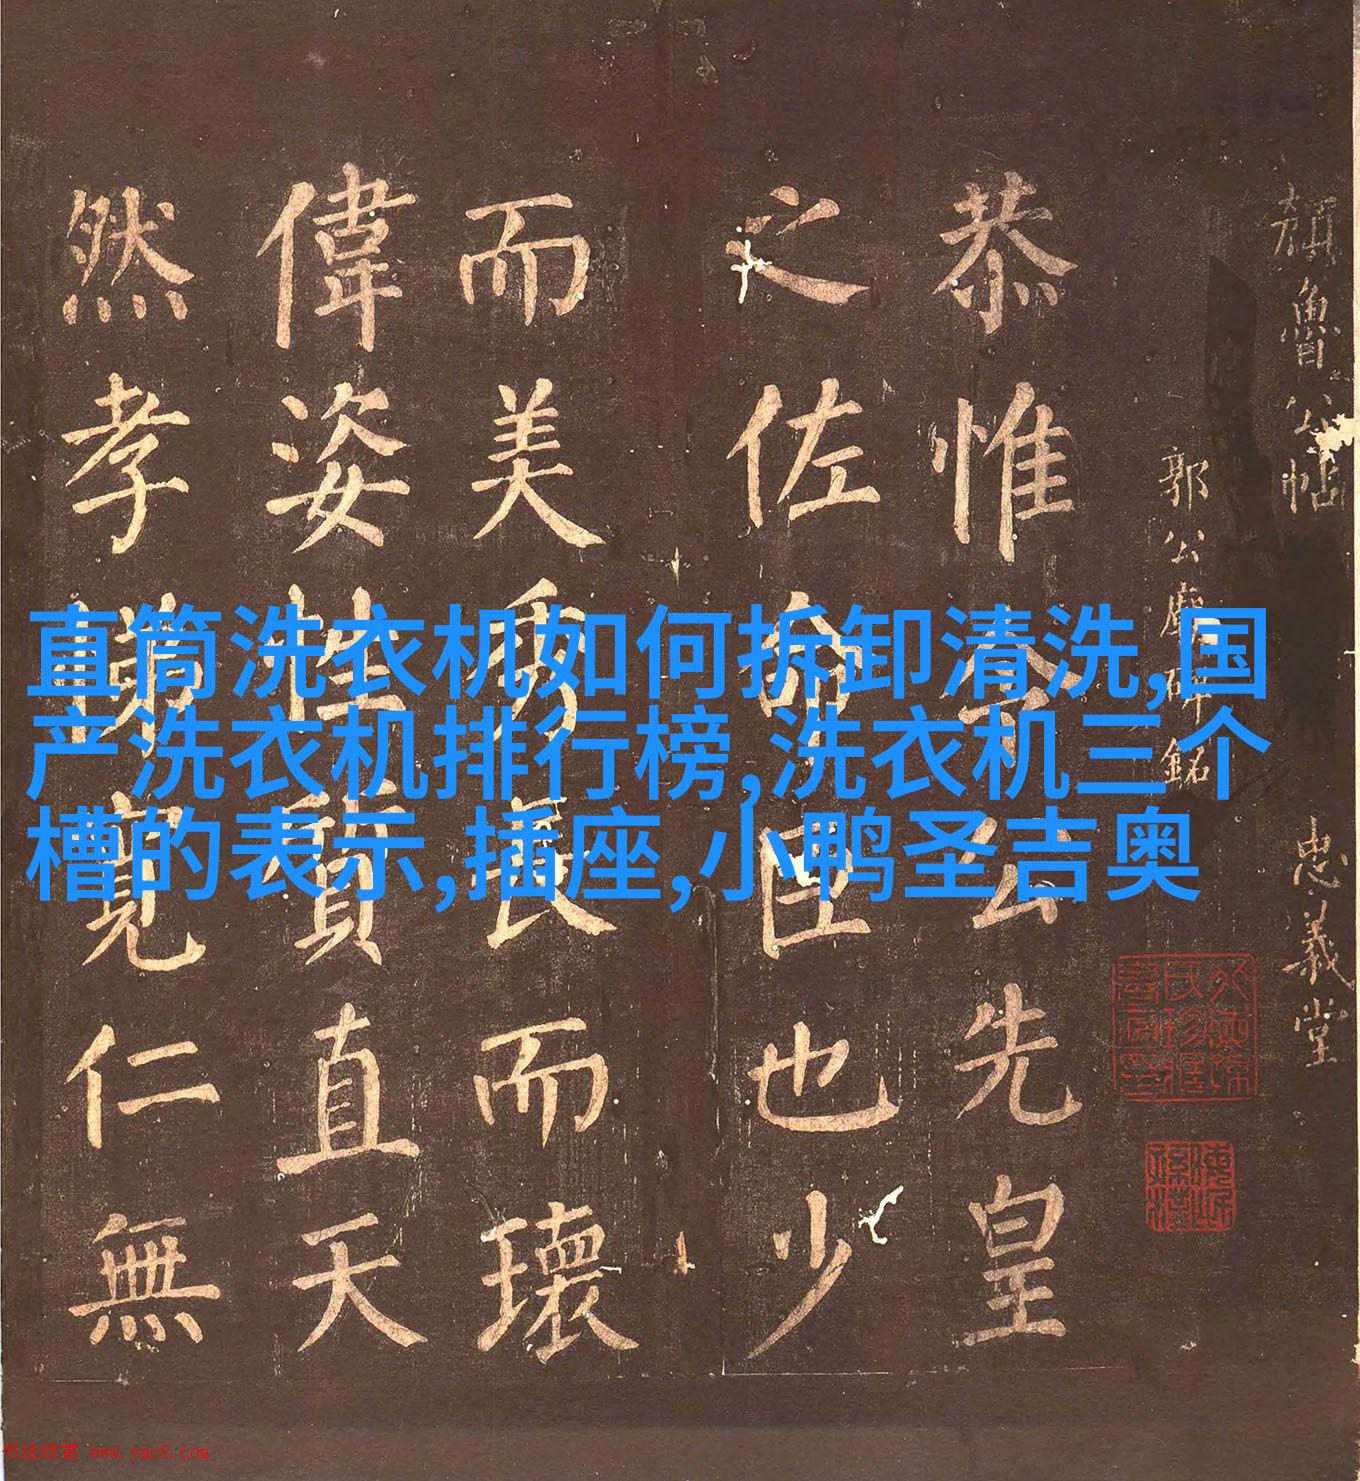 顔魯公帖
忠義堂
郭公廟碑銘
恭惟令公先皇
之佐命臣也少
而美秀長而瓌
偉姿性質直天
然孝謹寬仁無
直筒洗衣机如何拆卸清洗,国
产洗衣机排行榜,洗衣机三个
槽的表示,插座,小鸭圣吉奥
书法欣赏 www.yac8.com